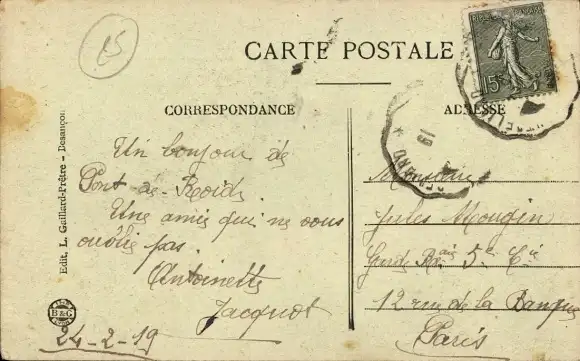 85
CARTE POSTALE
CORRESPONDANCE
ADRESSE
Edit. L. Gaillard-Prêtre - Besançon
Un bonjour de
Pont de Roide.
Une amie qui ne vous
oublie pas.
Antoinette
Jacquot
24-2-19
B&G
Monsieur
Jules Mougin
Garde Rais 5e Cie
12 rue de la Banque
Paris
19